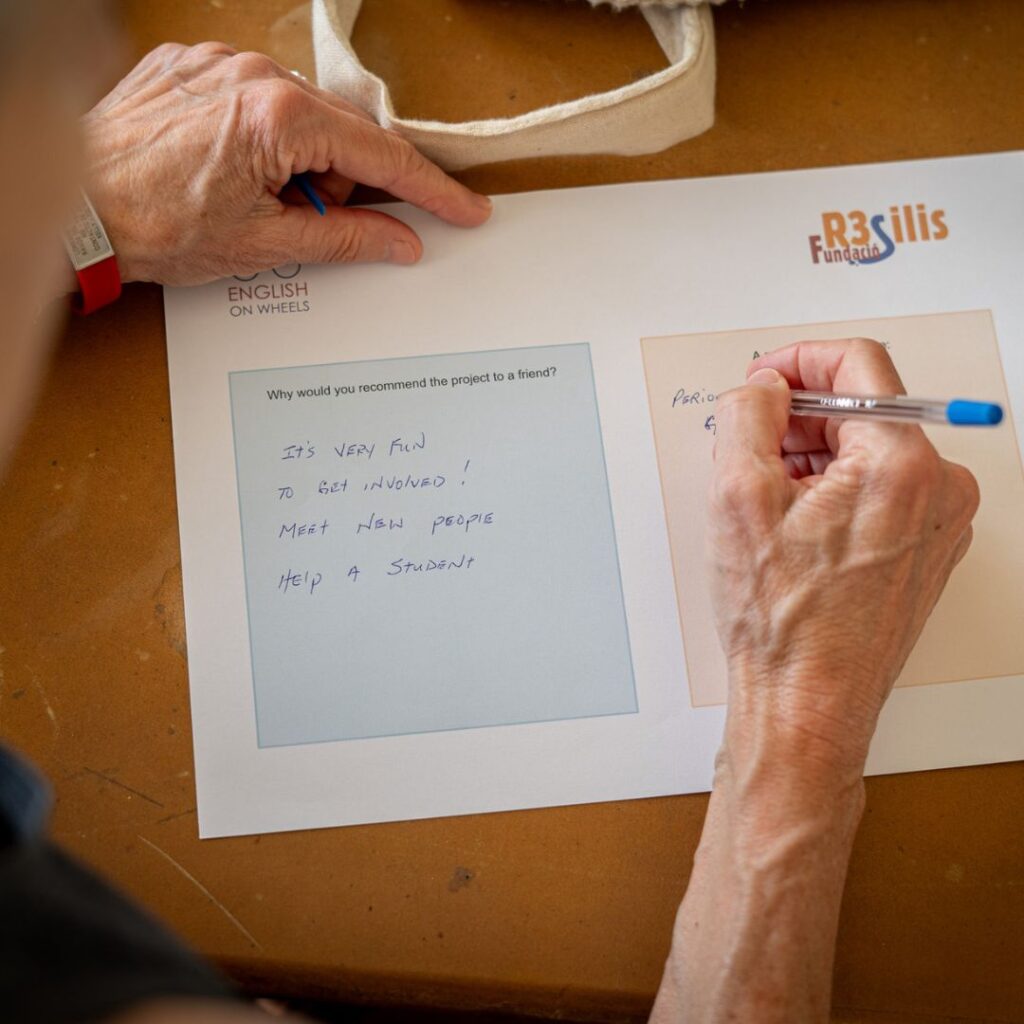 R3Silis
Fundació
ENGLISH
ON WHEELS
Why would you recommend the project to a friend?
It's VERY FUN
TO GET INVOLVED !
MEET NEW PEOPLE
HELP A STUDENT